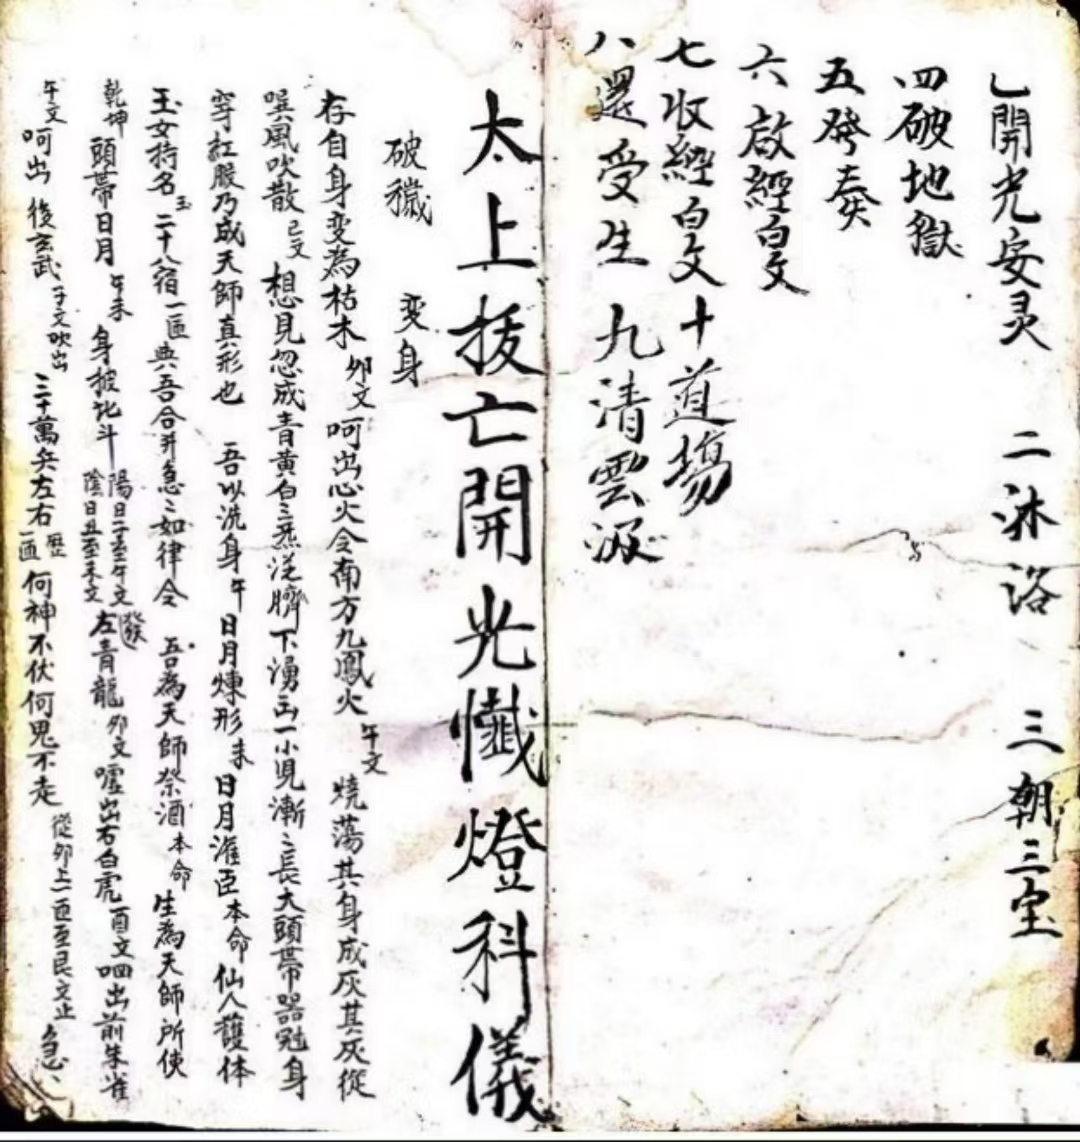 乚開光安灵 二沐浴 三朝三宝
四破地獄
五發奏
六啟經白文
七收經白文 十道塲
八還受生 九清雲淑
太上拔亡開光懺燈科儀
破穢 变身
存自身变為枯木 卯文 呵出心火令南方九鳳火 午文 燒蕩其身成灰其灰從
巽風吹散 已文 想見忽成青黄白三炁從臍下湧出一小児漸〻長大頭帶器冠身
穿紅服乃成天師真形也 吾以洗身 午 日月煉形 未 日月灌臣 本命 仙人護体
玉女持名 玉 二十八宿 一匝 與吾合并急〻如律令 吾為天師祭酒 本命 生為天師所使
乾坤 頭帶日月 午未 身披北斗 陽日子至午文 陰日丑至未文 發 左青龍 卯文 噓出右白虎 酉文 呬出前朱雀
午文 呵出後玄武 子文吹出 三十萬兵左右 一匝 何神不伏何鬼不走 從卯上一匝至艮文止 急〻